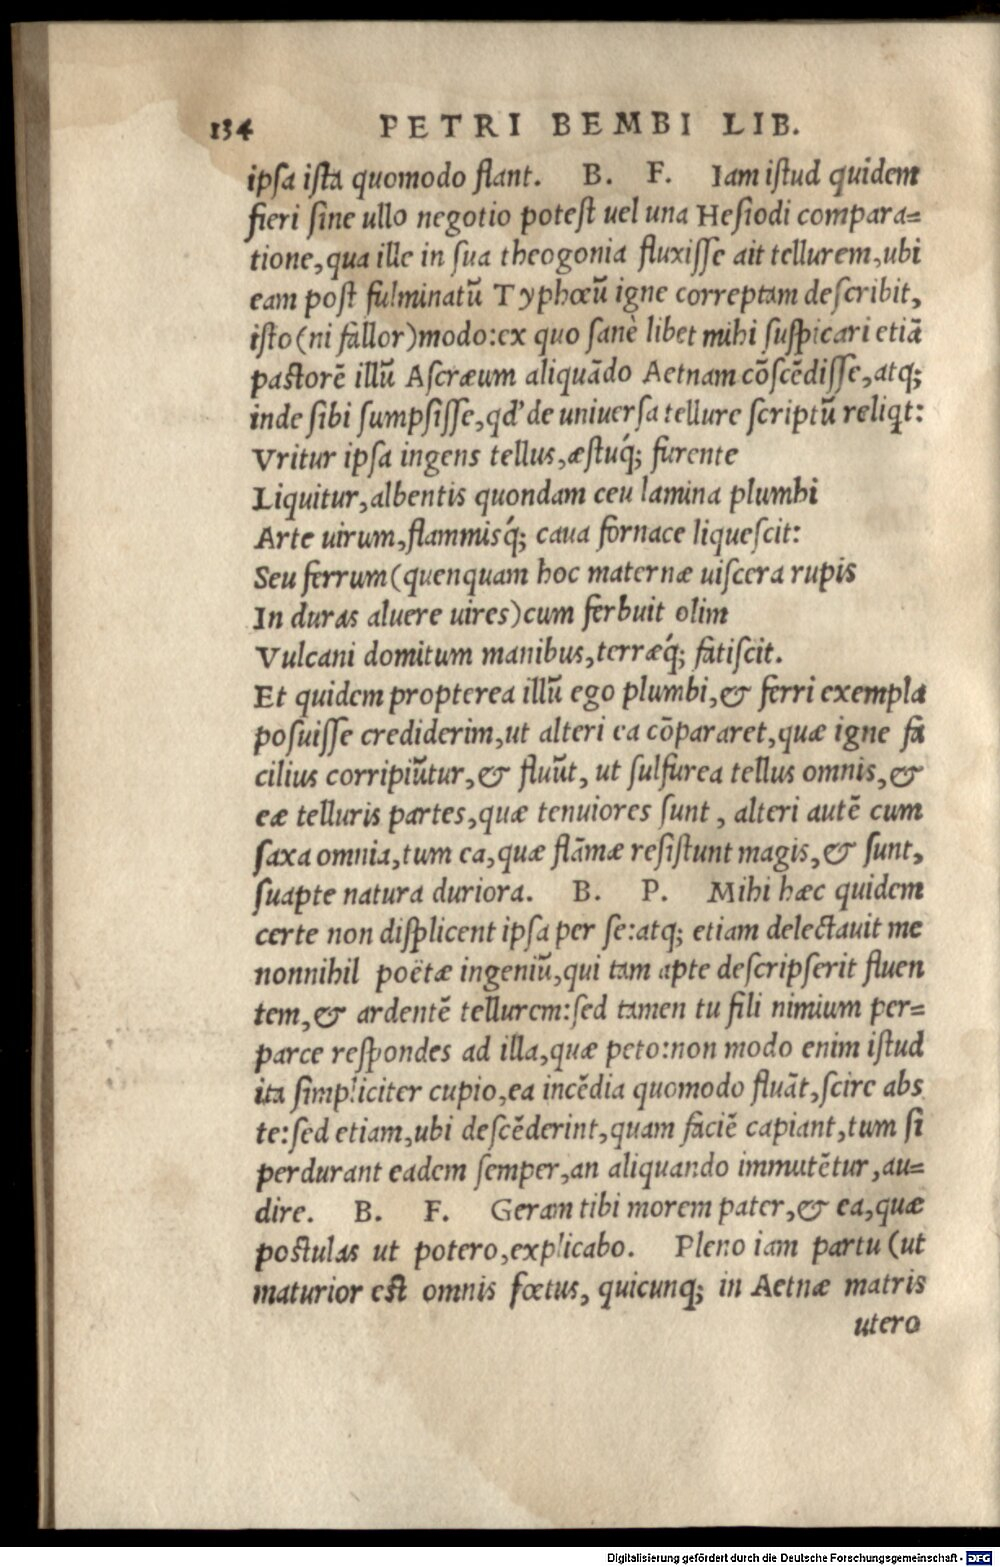 134 PETRI BEMBI LIB.
ipſa iſta quomodo flant. B. F. Iam iſtud quidem
fieri ſine ullo negotio poteſt uel una Heſiodi compara=
tione,qua ille in ſua theogonia fluxiſſe ait tellurem,ubi
eam poſt fulminatũ Typhœũ igne correptam deſcribit,
iſto(ni fallor)modo:ex quo ſanè libet mihi ſuſpicari etiã
paſtorẽ illũ Aſcræum aliquãdo Aetnam cõſcẽdiſſe,atq;
inde ſibi ſumpſiſſe,qď de uniuerſa tellure ſcriptũ reliqt:
Vritur ipſa ingens tellus,æſtuq́; furente
Liquitur,albentis quondam ceu lamina plumbi
Arte uirum,flammisq́; caua fornace liqueſcit:
Seu ferrum(quenquam hoc maternæ uiſcera rupis
In duras aluere uires)cum ferbuit olim
Vulcani domitum manibus,terræq́; fatiſcit.
Et quidem propterea illũ ego plumbi,& ferri exempla
poſuiſſe crediderim,ut alteri ea cõpararet,quæ igne fa
cilius corripiũtur,& fluũt, ut ſulfurea tellus omnis,&
eæ telluris partes,quæ tenuiores ſunt, alteri autẽ cum
ſaxa omnia,tum ea,quæ flãmæ reſiſtunt magis,& ſunt,
ſuapte natura duriora. B. P. Mihi hæc quidem
certe non diſplicent ipſa per ſe:atq; etiam delectauit me
nonnihil poëtæ ingeniũ,qui tam apte deſcripſerit fluen
tem,& ardentẽ tellurem:ſed tamen tu fili nimium per=
parce reſpondes ad illa,quæ peto:non modo enim iſtud
ita ſimpliciter cupio,ea incẽdia quomodo fluãt,ſcire abs
te:ſed etiam,ubi deſcẽderint,quam faciẽ capiant,tum ſi
perdurant eadem ſemper,an aliquando immutẽtur,au=
dire. B. F. Geram tibi morem pater,& ea,quæ
poſtulas ut potero,explicabo. Pleno iam partu (ut
maturior eſt omnis fœtus, quicunq; in Aetnæ matris
utero
Digitalisierung gefördert durch die Deutsche Forschungsgemeinschaft - DFG